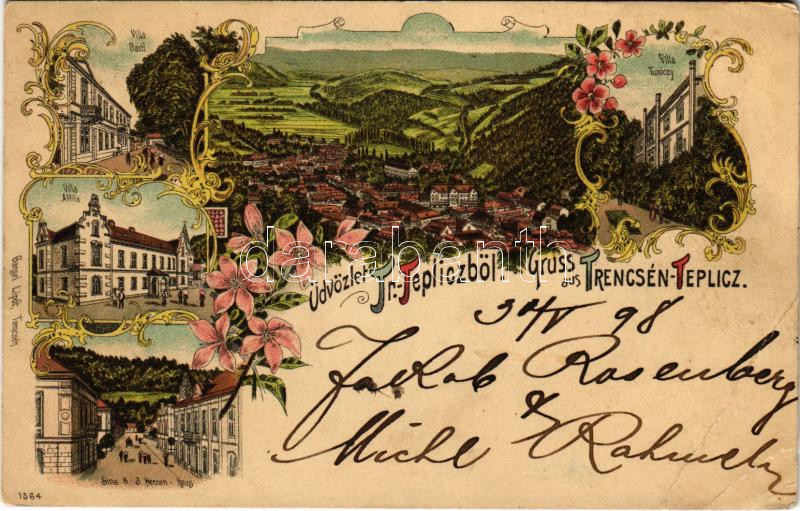 Villa
Bartl
Villa
Turóczy
Villa
Attila
darabanth.com
Üdvözlet Tr.-Tepliczből Gruss aus TRENCSÉN-TEPLICZ.
98
Jakob Rosenberg
&
Michl
Sina u. 3 Herzen-Haus
1564
Lipót, Trencsén.